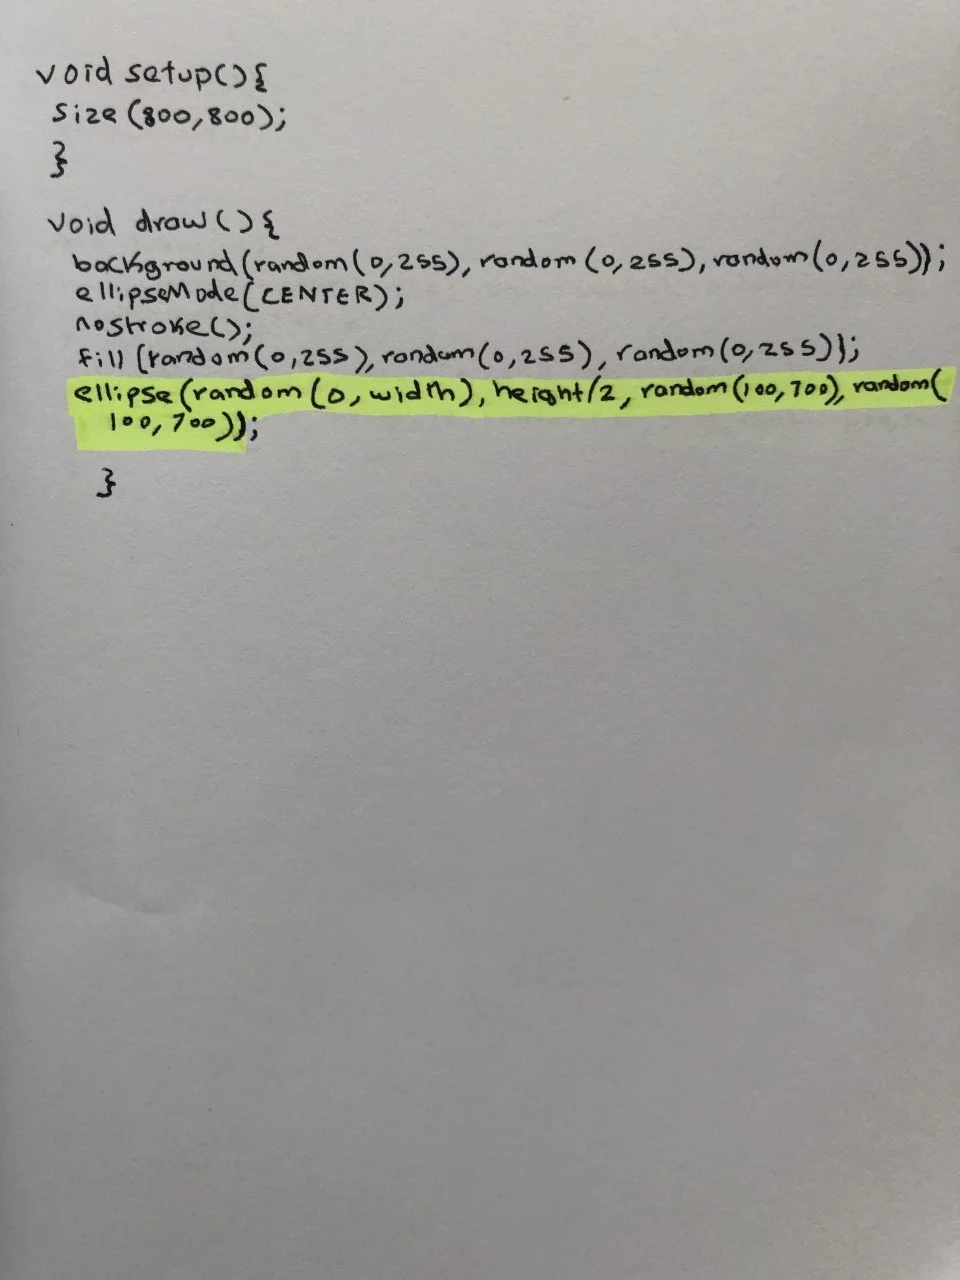 void setup(){
size(800,800);
}
void draw(){
background(random(0,255), random(0,255), random(0,255));
ellipseMode(CENTER);
noStroke();
fill(random(0,255), random(0,255), random(0,255));
ellipse(random(0, width), height/2, random(100,700), random(
100,700));
}